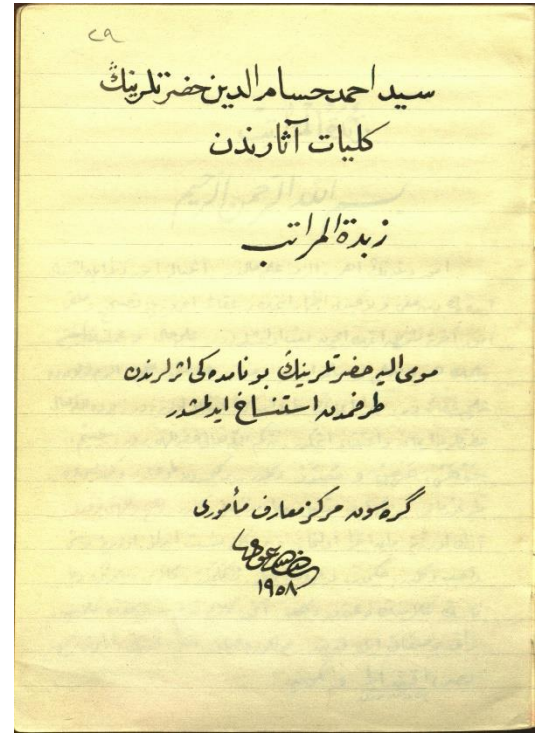 ٤٩
سيد احمد حسام الدين حضرتلرينڭ
كليات آثارندن
زبدة المراتب
مومى اليه حضرتلرينڭ بو نامده كى اثرلرندن
طرفمدن استنساخ ايدلمشدر
گره سون مركز معارف مأمورى
١٩٥٨